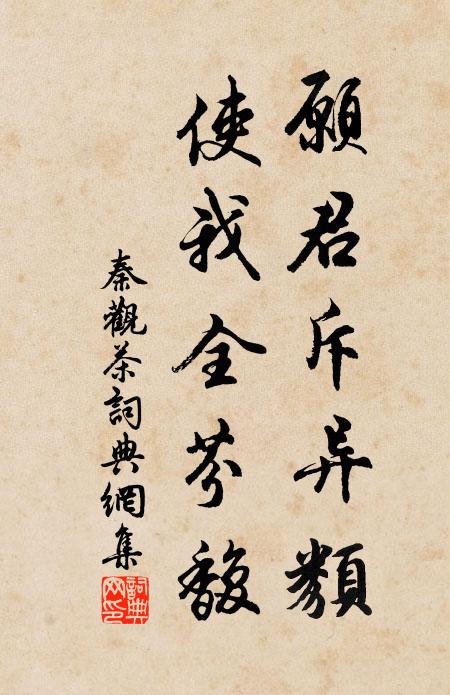 願君斥异類
使我全芬馥
秦觀茶詞典網集
詞典網印